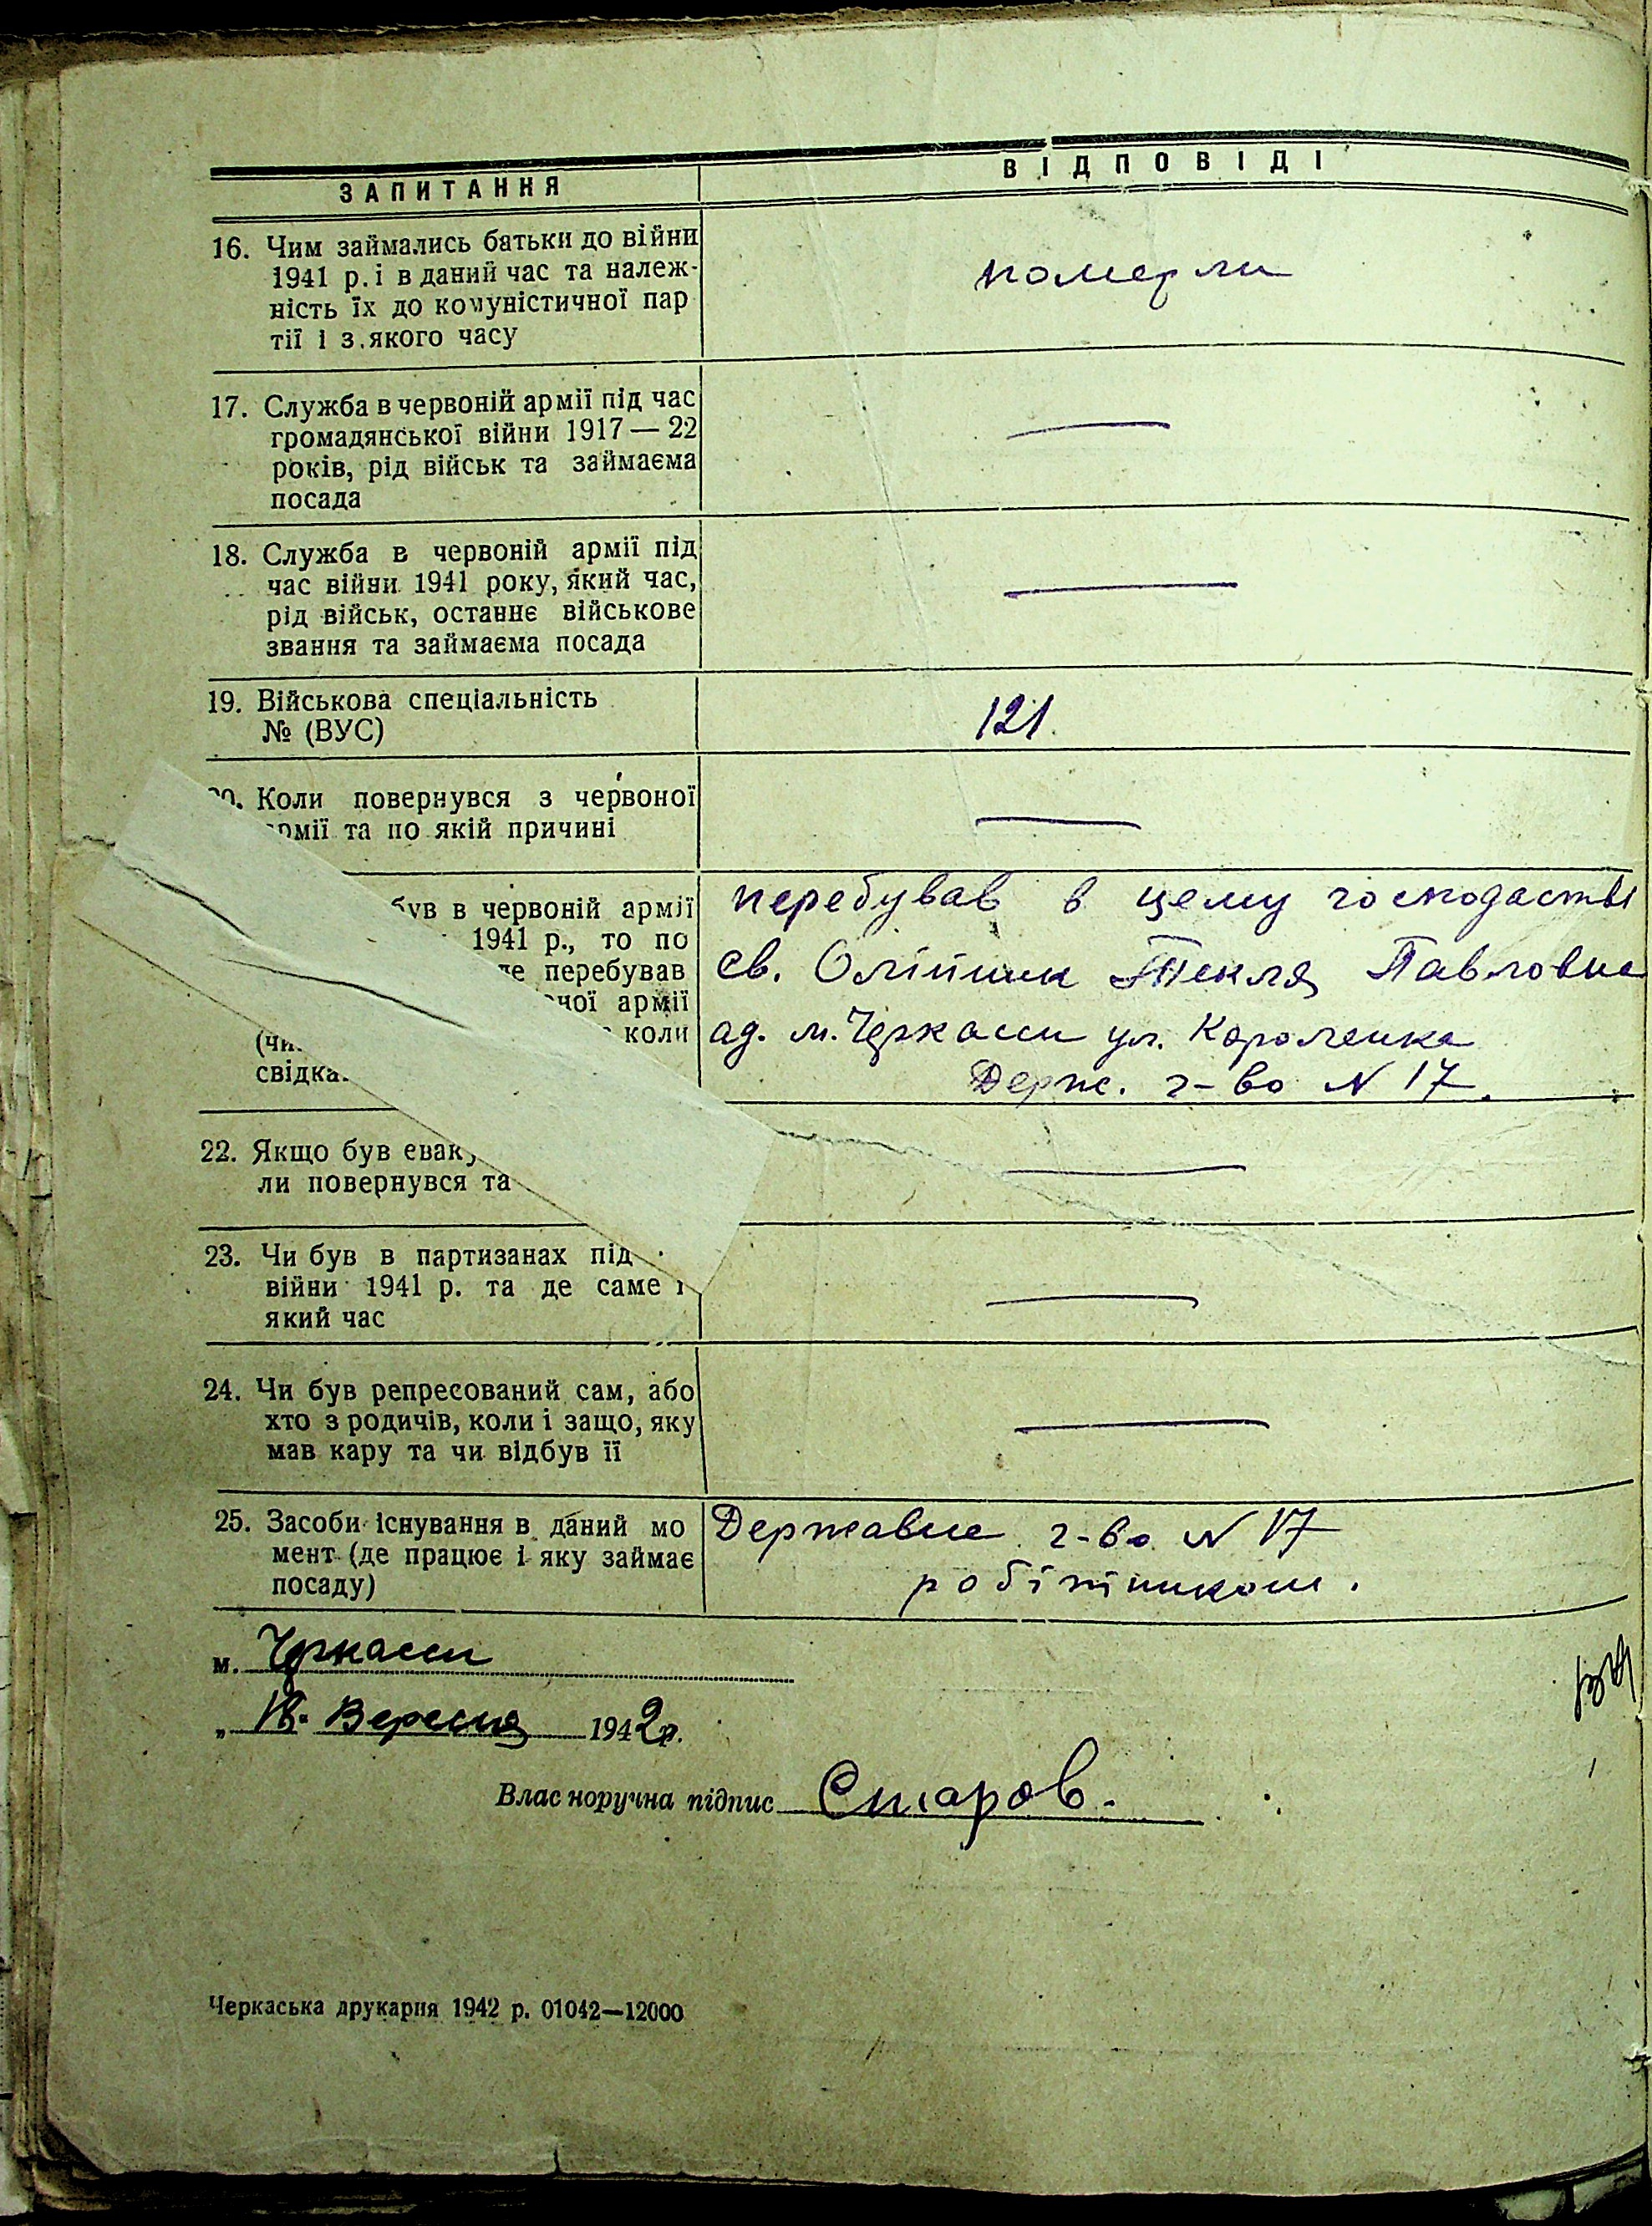 ЗАПИТАННЯ ВІДПОВІДІ
16. Чим займались батьки до війни
1941 р. і в даний час та належ-
ність їх до комуністичної пар
тії і з якого часу
померли
17. Служба в червоній армії під час
громадянської війни 1917 — 22
років, рід військ та займаєма
посада
—
18. Служба в червоній армії під
час війни 1941 року, який час,
рід військ, останнє військове
звання та займаєма посада
—
19. Військова спеціальність
№ (ВУС)
121.
Коли повернувся з червоної
армії та по якій причині
—
був в червоній армії
1941 р., то по
де перебував
армії
коли
(чи
свідка
перебував в цему господастві
св. Олійник Текля Павловна
ад. м. Черкаси ул. Короленка
Держ. г-во N 17.
22. Якщо був еваку
ли повернувся та
—
23. Чи був в партизанах під
війни 1941 р. та де саме і
який час
—
24. Чи був репресований сам, або
хто з родичів, коли і защо, яку
мав кару та чи відбув її
—
25. Засоби існування в даний мо
мент (де працює і яку займає
посаду)
Державне г-во N 17
робітником.
м. Черкаси
„ 18. Вересня 1942 р.
Власноручна підпис Старов.
Черкаська друкарня 1942 р. 01042—12000